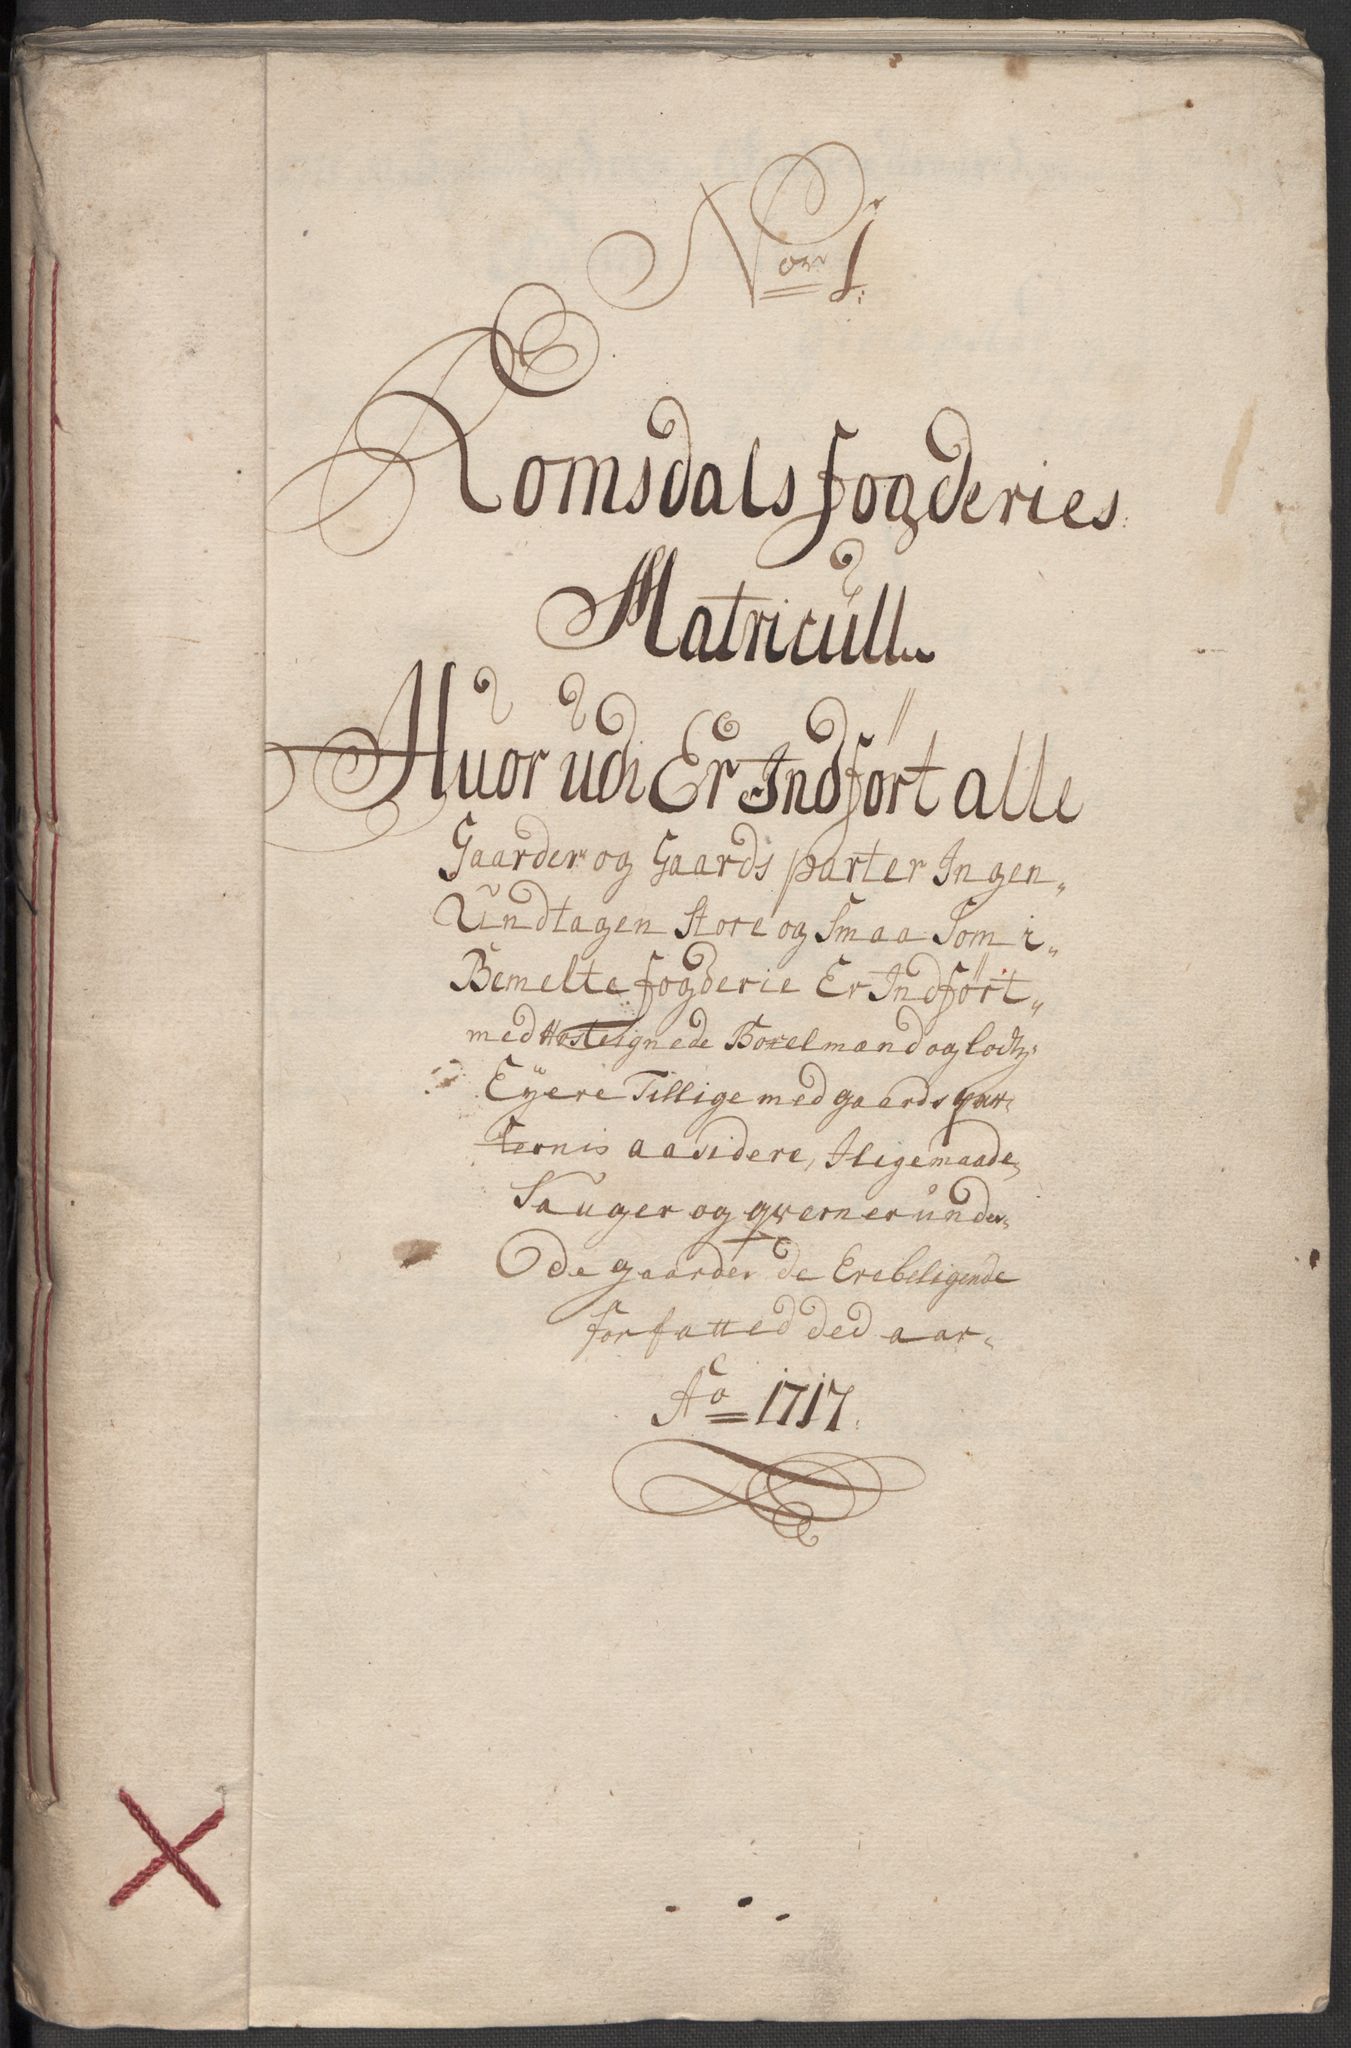 Nor 1:
Romsdals fogderies
Matricull
Huor udi Er Indført alle
Gaarder og Gaards parter Ingen
Undtagen Store og Smaa Som i
Bemelte fogderie Er Indført
med Hosteignede Boxelmænd og lodtz
Eyere Tillige med gaards par
ternis aasidere, I ligemaade
Sauger og qverner under
Ode gaarder de Ere beligende
forfatted ded aar
Ao 1717.